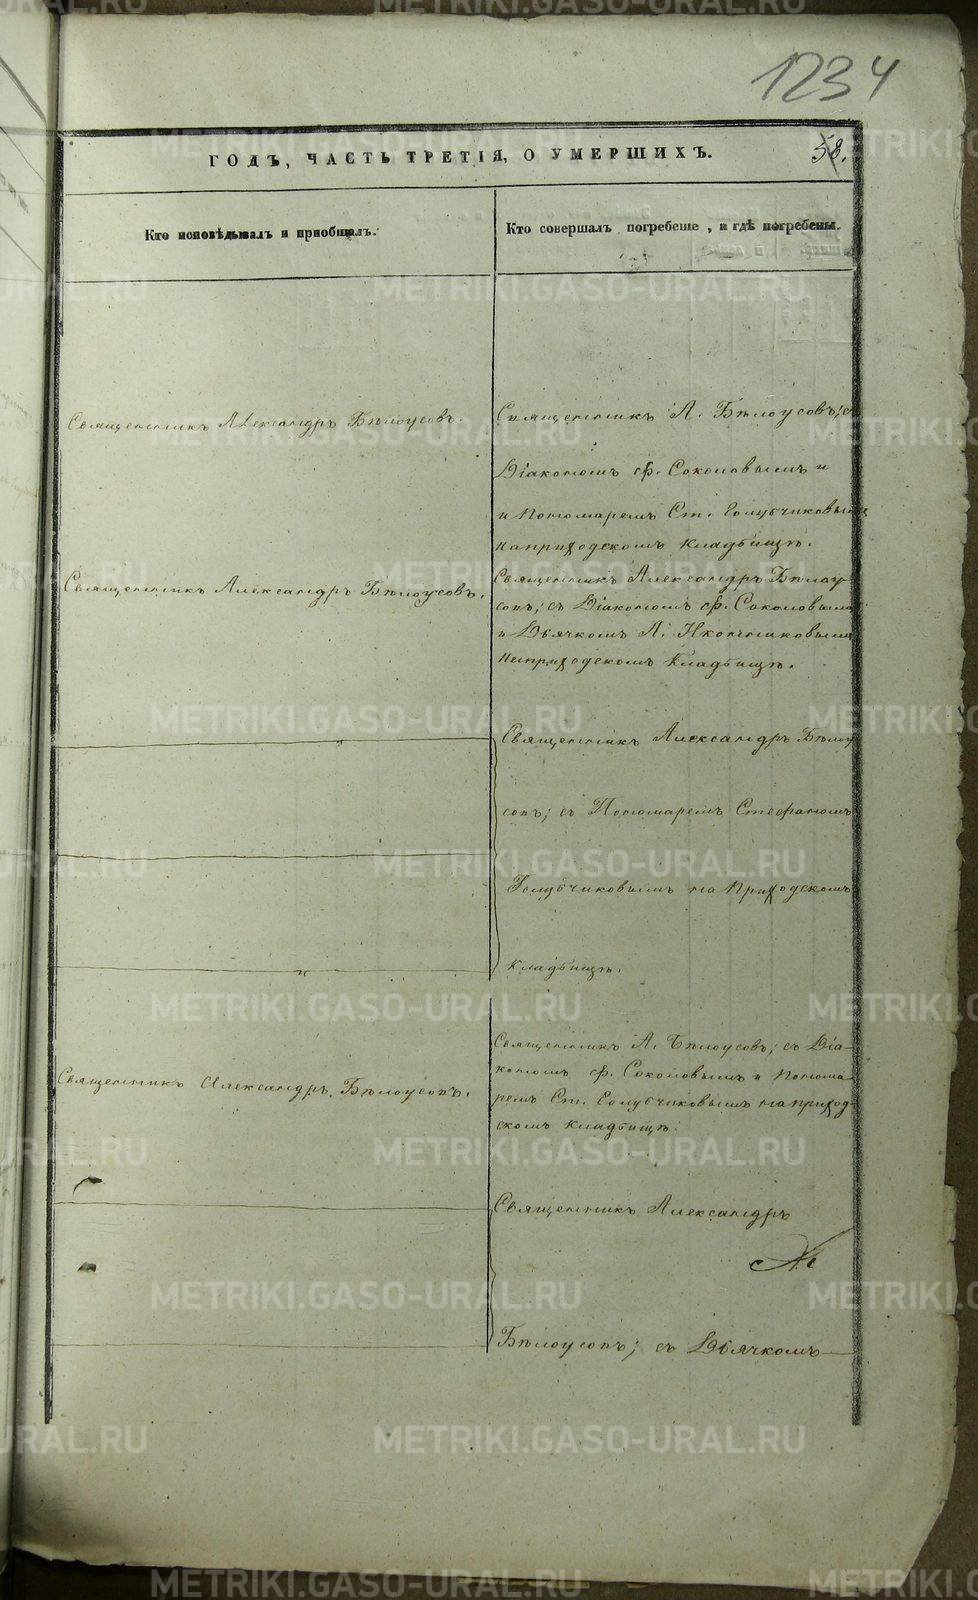 1234
ГОДЪ, ЧАСТЬ ТРЕТІЯ, О УМЕРШИХЪ.
58.
Кто исповѣдывалъ и пріобщалъ.
Кто совершалъ погребеніе, и гдѣ погребены.
Священникъ Александръ Бѣлоусовъ.
Священникъ А. Бѣлоусовъ; съ
Діакономъ Ф. Соколовымъ и
и Пономаремъ Ст. Голубчиковымъ
на приходскомъ кладбищѣ.
Священникъ Александръ Бѣлоусовъ.
Священникъ Александръ Бѣлоу-
совъ; съ Діакономъ Ф. Соколовымъ
и Дьячкомъ А. Иконниковымъ
на приходскомъ кладбищѣ.
Священникъ Александръ Бѣлоу
совъ; съ Пономаремъ Стефаномъ
Голубчиковымъ на Приходскомъ
кладбищѣ.
Священникъ Александръ Бѣлоусовъ.
Священникъ А. Бѣлоусовъ; съ Діа-
кономъ Ф. Соколовымъ и Понома-
ремъ Ст. Голубчиковымъ на приход-
скомъ кладбищѣ.
Священникъ Александръ
Бѣлоусовъ; съ Дьячкомъ
METRIKI.GASO-URAL.RU